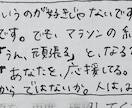 いうのが好きじゃないです
です。でも、マラソンの
うん、頑張る」と、なる
あなたを、応援してる。
からできないが。人は、